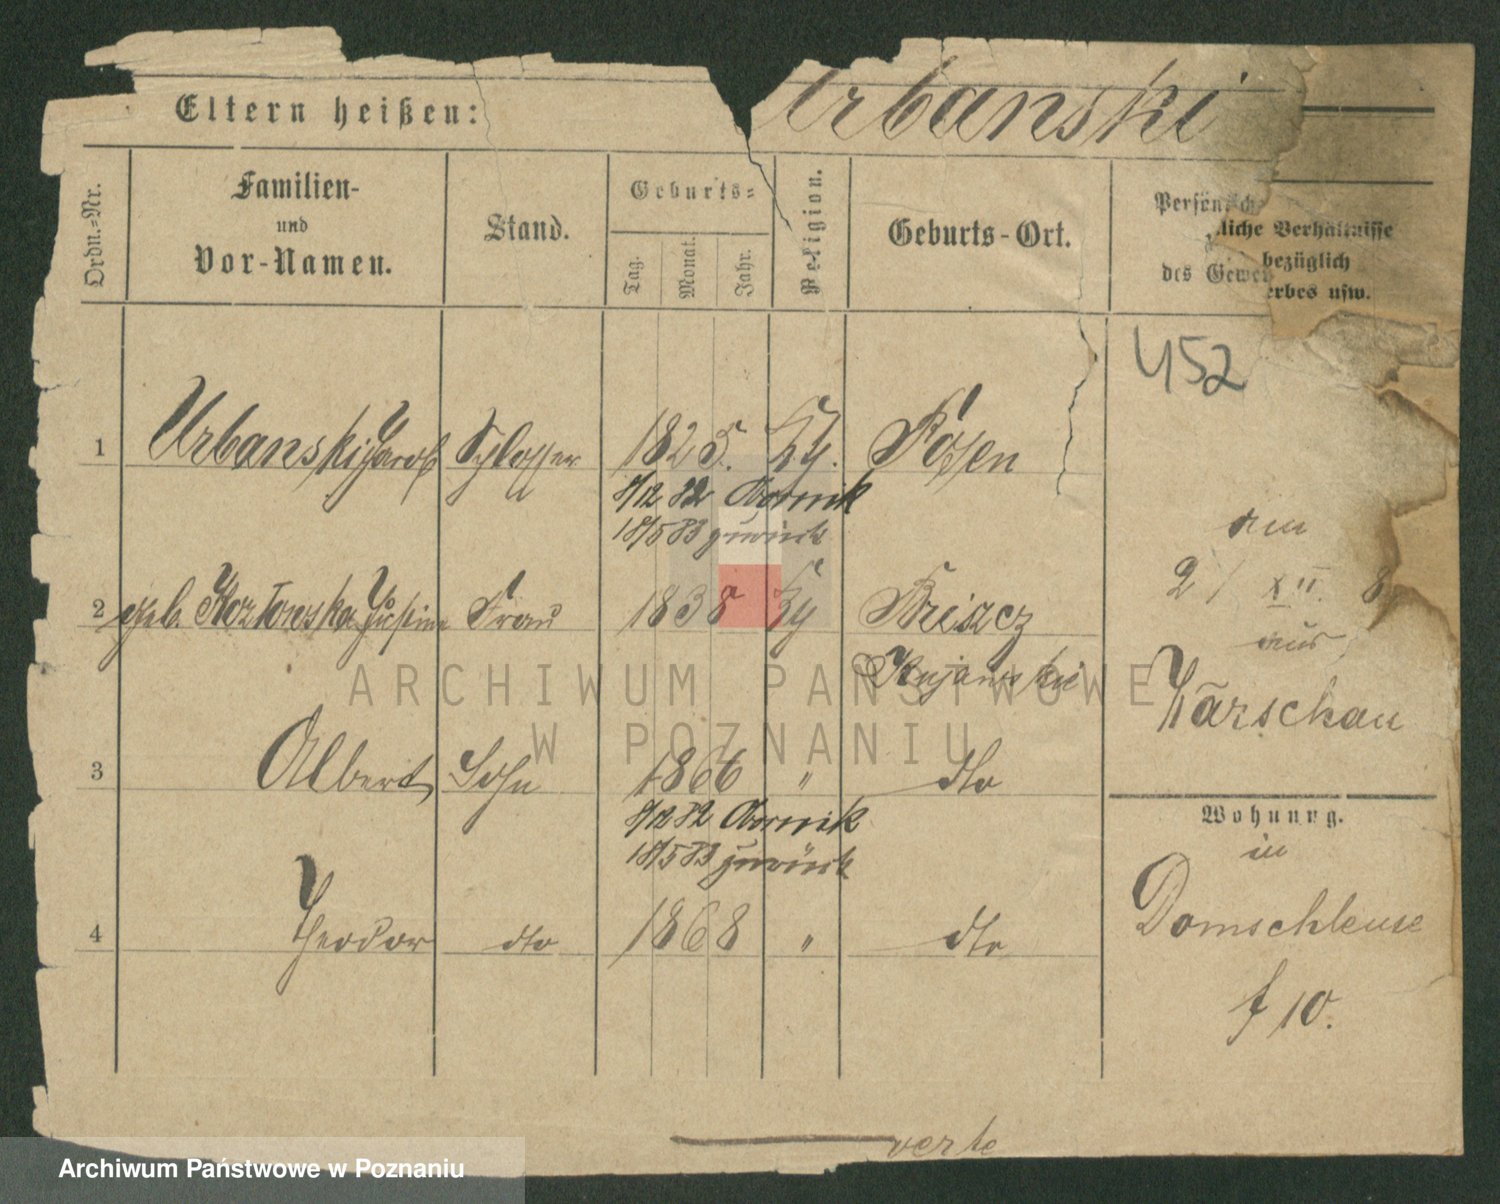 Eltern heißen:
Urbanski
Ordn.=Nr.
Familien-
und
Vor-Namen.
Stand.
Geburts=
Tag.
Monat.
Jahr.
Religion.
Geburts-Ort.
Persönlich
liche Verhältnisse
bezüglich
des Gewer
erbes usw.
452
1 Urbanski Jacob Schlosser 1825. Kth. Posen
8/12 82 Obornik
18/5 83 zurück
am
2/XII. 8
2 geb. Kozlowska Justine Frau 1838 Kth
aus
Kujawski
Warschau
3 Albert Sohn 1866 " dto
8/12 82 Obornik
18/5 83 zurück
Wohnung.
in
4 Theodor dto 1868 " dto
Domschleuse
f 10.
verte
ARCHIWUM PAŃSTWOWE
W POZNANIU
Archiwum Państwowe w Poznaniu